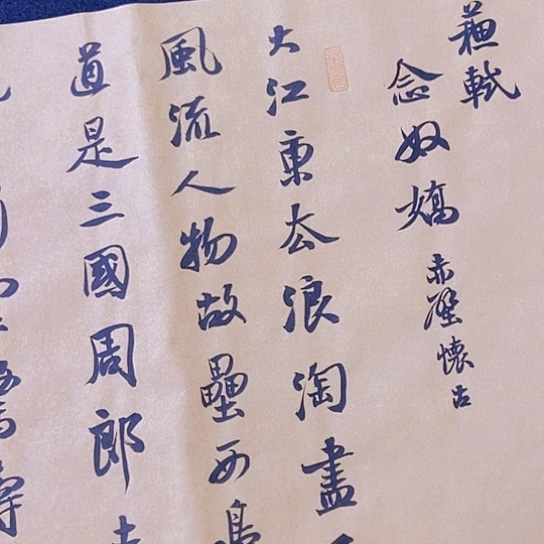 蘇軾
念奴嬌 赤壁懷古
大江東去浪淘盡
風流人物故壘西
道是三國周郎